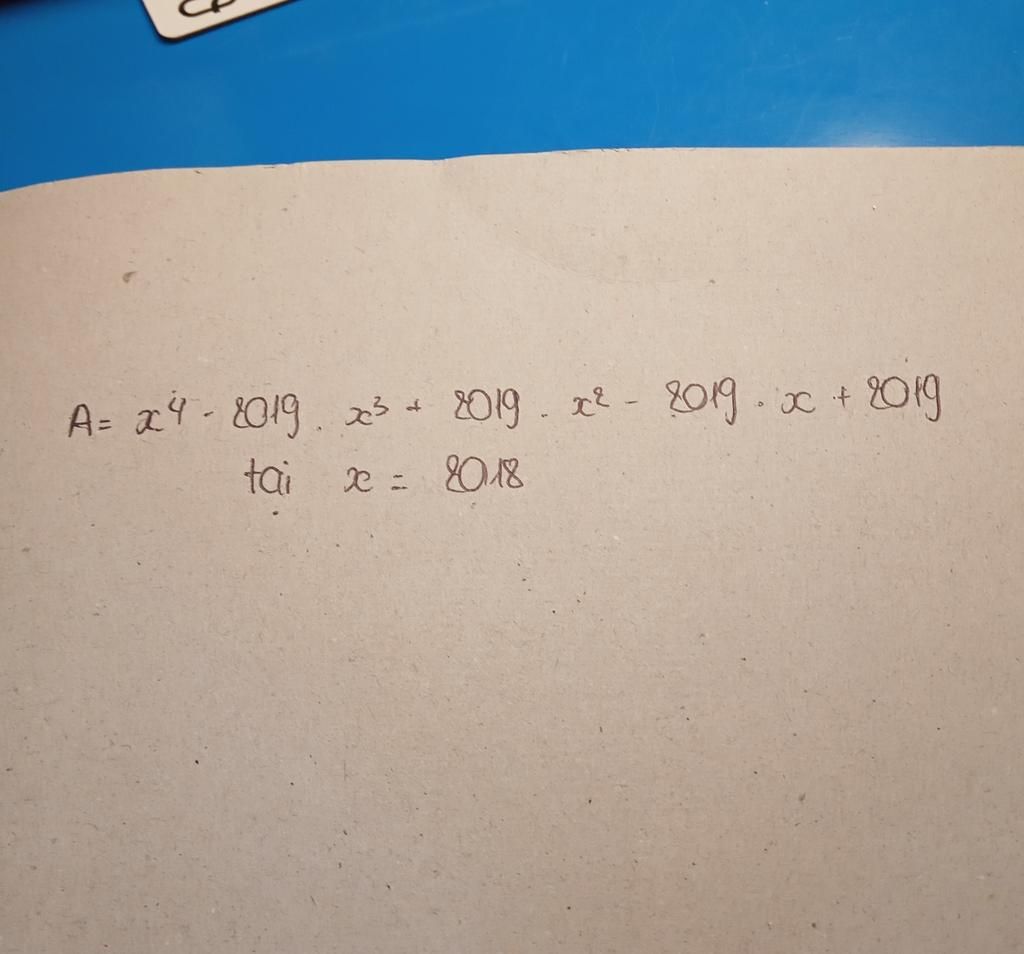 A = x⁴ - 2019 . x³ + 2019 . x² - 2019 . x + 2019
tại x = 2018